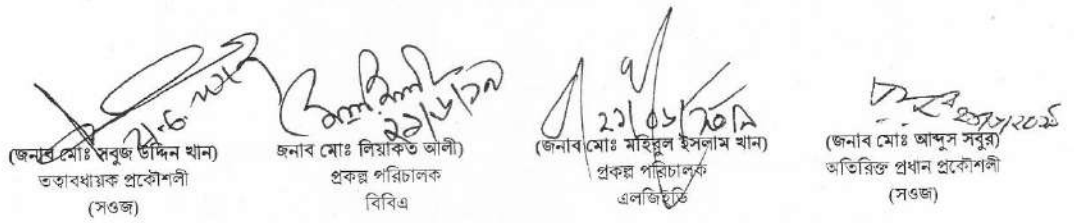 (জনাব মোঃ সবুজ উদ্দিন খান)
তত্ত্বাবধায়ক প্রকৌশলী
(সওজ)
জনাব মোঃ লিয়াকত আলী)
প্রকল্প পরিচালক
বিবিএ
(জনাব মোঃ মহিরুল ইসলাম খান)
প্রকল্প পরিচালক
এলজিইডি
(জনাব মোঃ আব্দুস সবুর)
অতিরিক্ত প্রধান প্রকৌশলী
(সওজ)